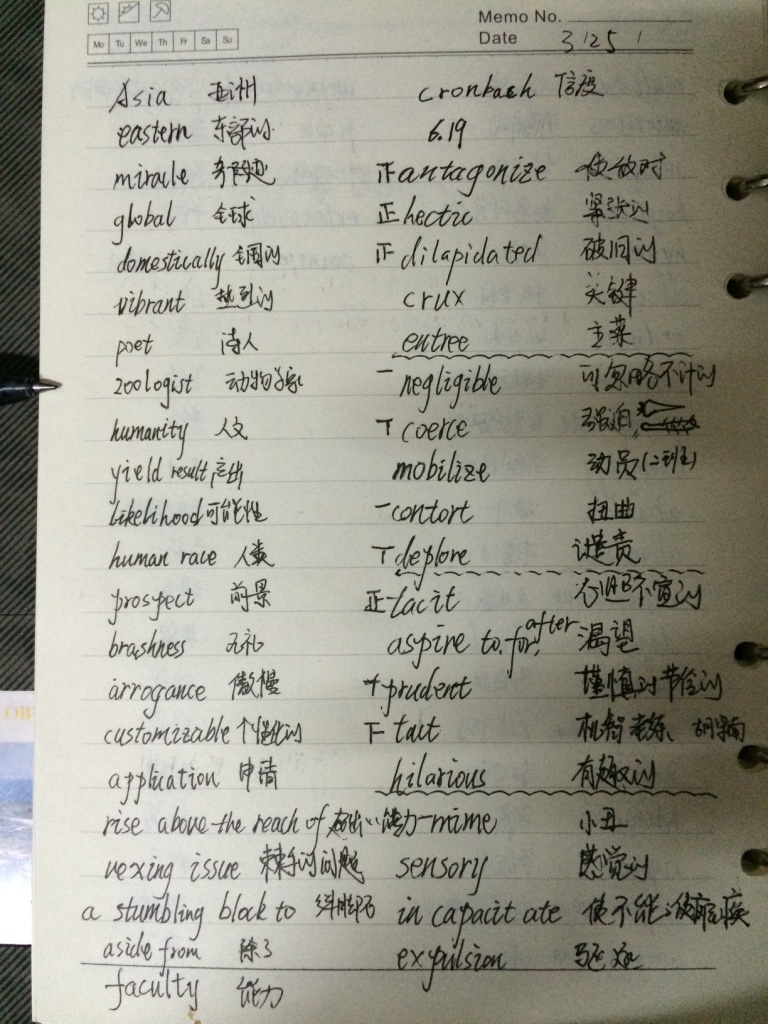 Memo No.
Mo Tu We Th Fr Sa Su
Date 3/25/
Asia 亚洲
eastern 东部的
miracle 奇迹
global 全球
domestically 全国的
vibrant 热烈的
poet 诗人
zoologist 动物学家
humanity 人文
yield result, 产出
likelihood 可能性
human race 人类
prospect 前景
brashness 无礼
arrogance 傲慢
customizable 个性化的
application 申请
rise above the reach of 超出…能力
vexing issue 棘手的问题
a stumbling block to 绊脚石
aside from 除了
faculty 能力
cronbach 信度
6.19
正 antagonize 使敌对
正 hectic 紧张的
正 dilapidated 破旧的
crux 关键
entree 主菜
一 negligible 可忽略不计的
T coerce 强迫
mobilize 动员
一 contort 扭曲
T deplore 谴责
正 tacit 不宣的
aspire to, for, after 渴望
prudent 谨慎的 节俭的
下 tact 机智 老练
hilarious 有趣的
一 mime 小丑
sensory 感觉的
incapacitate 使不能
expulsion 驱逐